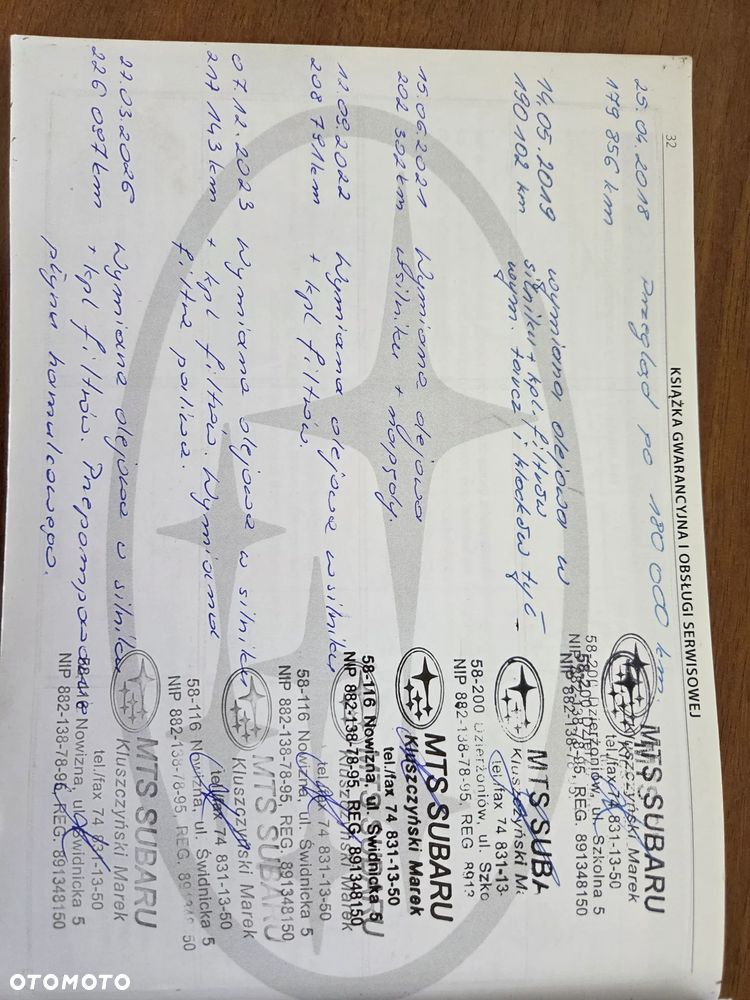 32
KSIĄŻKA GWARANCYJNA I OBSŁUGI SERWISOWEJ
25.04.2018 Przegląd po 180 000 km.
179 856 km
MTS SUBARU
Kluszczyński Marek
tel./fax 74 831-13-50
58-200 Dzierżoniów, ul. Szkolna 5
NIP 882-138-78-95, REG. 891348150
14.05.2019 wymiana olejowa w
190 102 km silniku + kpl. filtrów
wym. tarcz i klocków tył.
MTS SUBA
Kluszczyński M
tel./fax 74 831-13-
58-200 Dzierżoniów, ul. Szko
NIP 882-138-78-95, REG 891?
15.06.2021 Wymiana olejowa
202 302 km w silniku +
MTS SUBARU
Kluszczyński Marek
tel./fax 74 831-13-50
58-116 Nowizna, ul. Świdnicka 5
NIP 882-138-78-95, REG. 891348150
12.09.2022 Wymiana olejowa w silniku
208 791 km + kpl filtrów.
SUBARU
Kluszczyński Marek
tel./fax 74 831-13-50
58-116 Nowizna, ul. Świdnicka 5
NIP 882-138-78-95, REG. 891348150
07.12.2023 Wymiana olejowa w silniku
217 143 km + kpl filtrów. Wymiana
filtra paliwa.
MTS SUBARU
Kluszczyński Marek
tel./fax 74 831-13-50
58-116 Nowizna, ul. Świdnicka 5
NIP 882-138-78-95, REG. 50
27.03.2026 Wymiana olejowa w silniku
226 097 km + kpl filtrów. Przepompowanie
płynu hamulcowego.
MTS SUBARU
Kluszczyński Marek
tel./fax 74 831-13-50
58-116 Nowizna, ul. Świdnicka 5
NIP 882-138-78-95, REG. 891348150
OTOMOTO